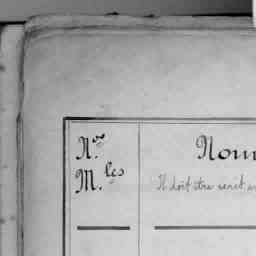 N.ros
M.les
Nom
Il doit être écrit